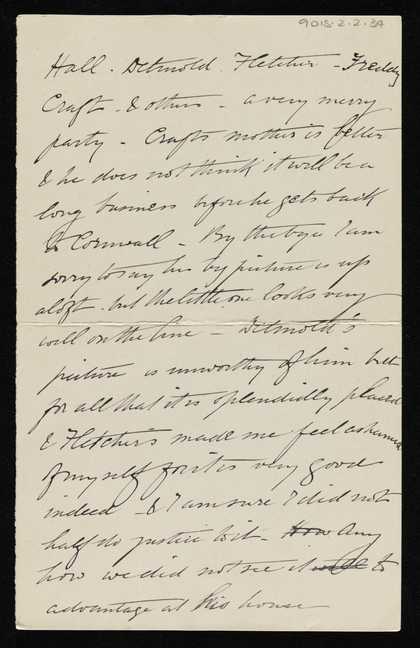 9015.2.2.34
Hall. Detmold. Fletcher - Freddy
Craft - & others - a very merry
party - Crafts mother is better
& he does not think it will be a
long business before he gets back
to Cornwall - By the bye I am
sorry to say his big picture is up
aloft - but the little one looks very
well on the line - Detmold's
picture is unworthy of him but
for all that it is splendidly placed
& Fletcher's made me feel ashamed
of myself for it is very good
indeed - & I am sure I did not
half do justice to it - How Any
how we did not see it to
advantage at his house